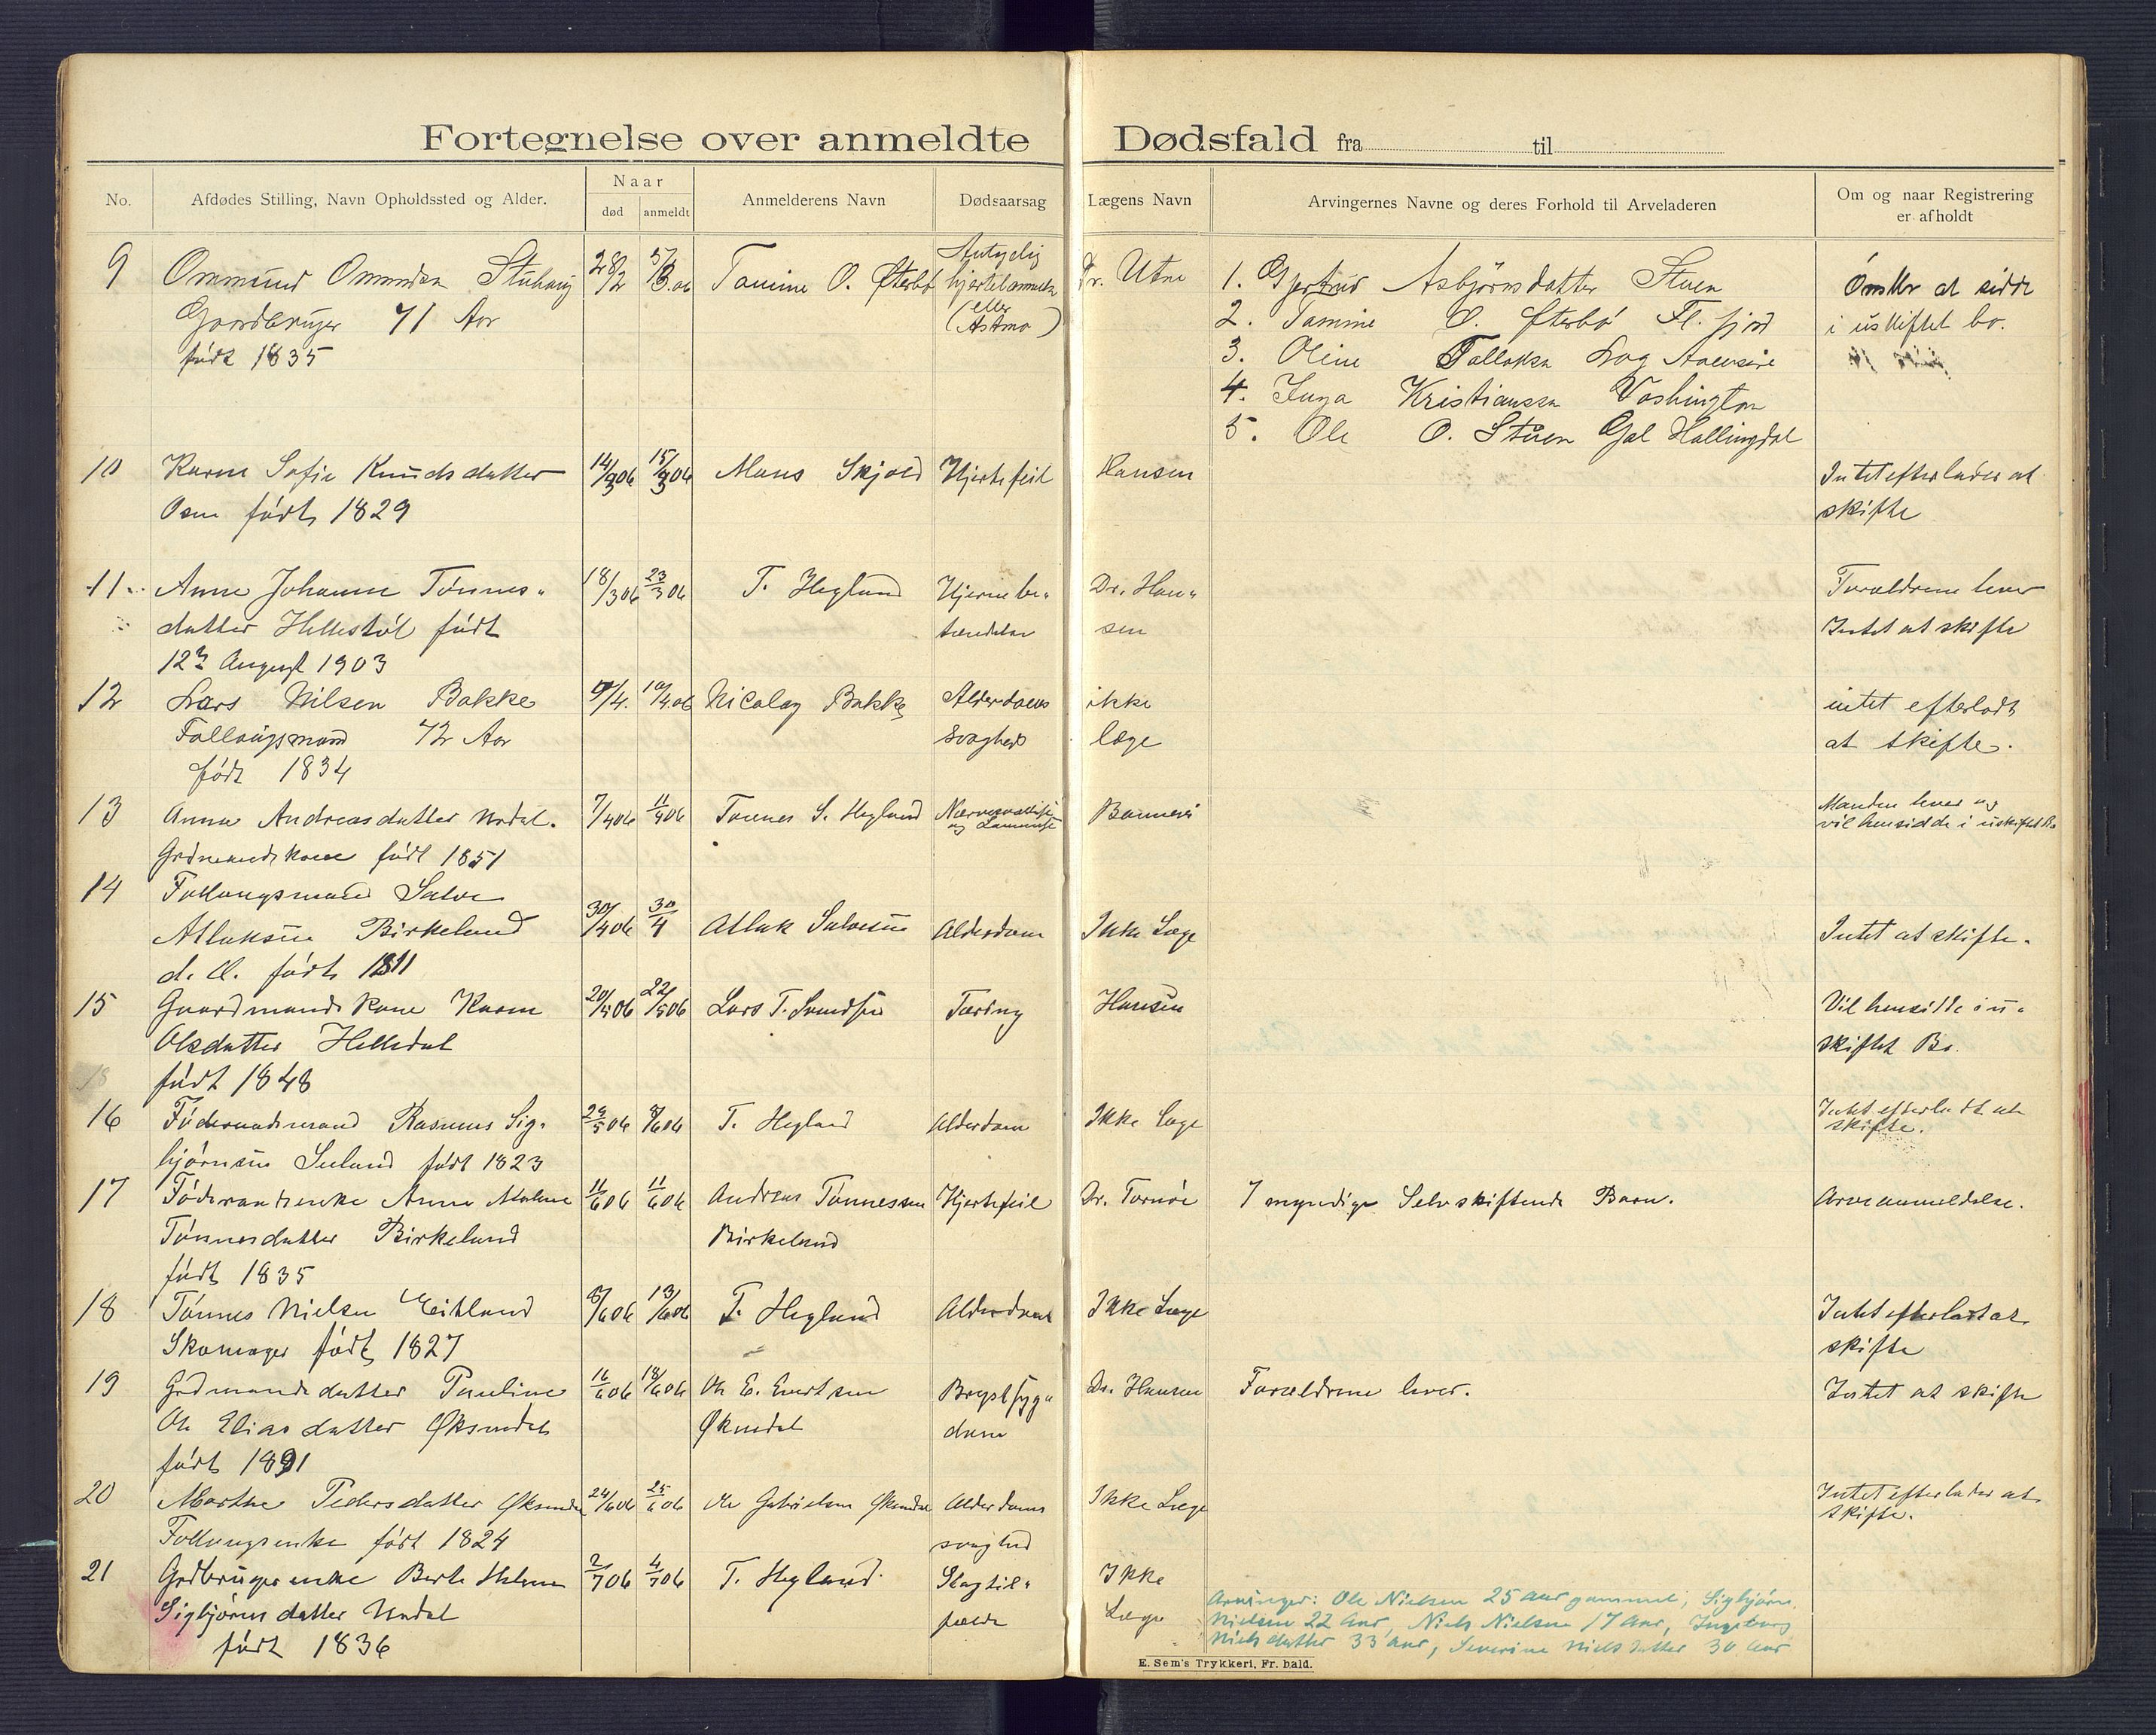 Fortegnelse over anmeldte Dødsfald fra til
No. Afdødes Stilling, Navn Opholdssted og Alder. Naar Anmelderens Navn Dødsaarsag Lægens Navn Arvingernes Navne og deres Forhold til Arveladeren Om og naar Registrering
død anmeldt er afholdt
9 Ommund Ommundsen Stuhaug 28/2 5/3.06 Tamine O. Øfterbø Antagelig Dr. Utne 1. Gjertrud Asbjörnsdatter Stuen Önsker at sidde
Gaardbruger 71 Aar hjertelammelse 2. Tamine O. Øfterbö Fl. fjord i uskiftet bo.
født 1835 eller (Astma) 3. Oline Tallaksen
4. Inga Kristianssen Vashington
5. Ole O. Stuen Gol Hallingdal
10 Karen Sofie Knudsdatter 14/3 06 15/3 06 Mons Skjold Hjertefeil Hansen Intet efterlades at
Osen födt 1829 skifte
11 Anne Johanne Tönnes- 18/3 06 23/3 06 T. Hegland Hjernebe- Dr. Han- Forældrene lever
datter Hellestöl födt tændelse sen Intet at skifte
12 August 1903
12 Lars Nilsen Bakke 9/4. 10/4.06 Nicolay Bakke Alderdoms ikke intet efterladt
Follaugsmand 72 Aar svaghed læge at skifte.
født 1834
13 Anna Andreasdatter Undal. 7/4 06 11/4 06 Tønnes S. Hegland og Manden lever og
Grdmandskone født 1851 vil hensidde i uskiftet Bo
14 Follaugsmand Salve
Atlaksen Birkeland 30/4 06 30/4 Atlak Salvesen Alderdom Ikke Læge Intet at skifte.
d. Æ. födt 1811
15 Gaardmandskone Karen 20/5 06 22/5 06 Lars T. Svendsen Tæring Hansen Vil hensidde i u-
Olsdatter Helledal skiftet Bo.
18 födt 1848
16 Föderaadsmand Rasmus Sig- 29/5 06 8/6 06 T. Hegland Alderdom Ikke Læge Intet efterladt at
björnsen født 1823 skifte.
17 Föderaadsenke Anne Malene 11/6 06 11/6 06 Andreas Tønnessen Hjertefeil Dr. Tornøe 7 myndige Selvskiftende Barn. Arveanmeldelse.
Tönnesdatter Birkeland Birkeland
födt 1835
18 Tönnes Nielsen Eikland 8/6 06 13/6 06 T. Hegland Alderdom Ikke Læge Intet efterladt at
Skomager født 1827 skifte
19 Grdmandsdatter Pauline 16/6 06 18/6 06 Ole E. Evertsen Brystsyg- Dr. Hansen Forældrene lever. Intet at skifte
Ole Eliasdatter Øksendal Øksendal dom
født 1891
20 Marthe Pedersdatter Øksendal 24/6 06 25/6 06 Ole Gabrielsen Øksendal Alderdoms Ikke Læge Intet efterlades at
Follaugsenke født 1824 svaghed skifte.
21 Grdbrugerenke Berte Helene 2/7 06 4/7 06 T. Hegland. Slagtil- Ikke Arvinger: Ole Nielsen 25 aar gammel, Sigbjørn
Sigbjörnsdatter Undal fælde Læge Nielsen 22 Aar, Niels Nielsen 17 Aar, Ingeborg
født 1836 Nielsdatter 33 aar, Severine Nielsdatter 30 Aar
E. Sem's Trykkeri, Fr. hald.